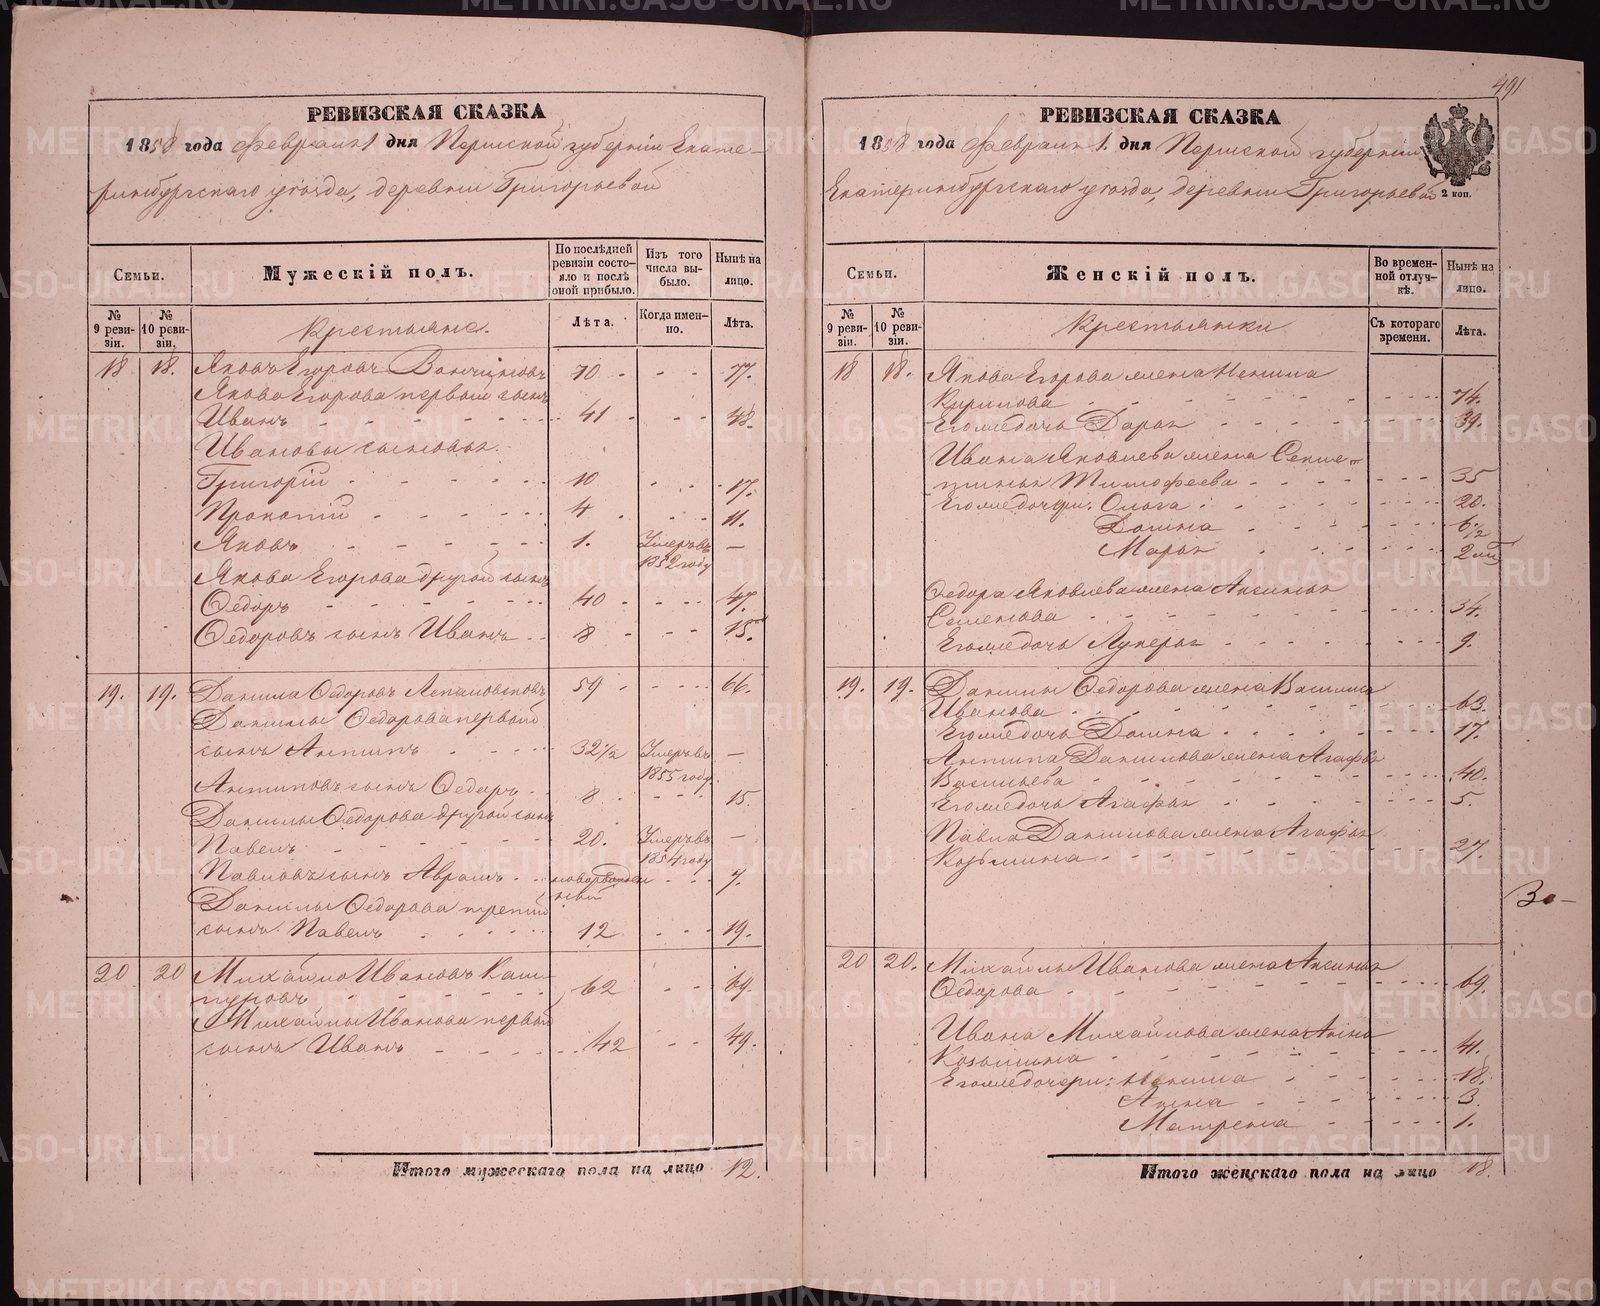 491
РЕВИЗСКАЯ СКАЗКА
1858 года Февраля 1 дня Пермской губерніи Екате-
ринбургскаго уѣзда, деревни Григорьевой
Семьи.
Мужескій полъ.
По послѣдней ревизіи состояло и послѣ оной прибыло.
Изъ того числа выбыло.
Нынѣ на лицо.
№ 9 ревизіи.
№ 10 ревизіи.
Крестьяне.
Лѣта.
Когда именно.
Лѣта.
18 18. Яковъ Егоровъ 70 77.
Якова Егорова первый сынъ
Иванъ 41 48.
Ивановы сыновья.
Григорій 10 17.
Прокопій 4 11.
Яковъ 1. Умеръ въ 1852 году —
Якова Егорова другой сынъ
Ѳедоръ 40 47.
Ѳедоровъ сынъ Иванъ 8 15.
19. 19. Данила Ѳедоровъ 59 66.
Данилы Ѳедорова первый
сынъ Антипъ 32 1/2 Умеръ въ 1855 году —
Антиповъ сынъ Ѳедоръ 8 15.
Данилы Ѳедорова другой сынъ
Павелъ 20. Умеръ въ 1854 году —
Павловъ сынъ Аврамъ 7.
Данилы Ѳедорова третій
сынъ Павелъ 12 19.
20 20 Михайло Ивановъ 62 69.
Михайлы Иванова первый
сынъ Иванъ 42 49.
Итого мужескаго пола на лицо 12.
РЕВИЗСКАЯ СКАЗКА
1858 года Февраля 1 дня Пермской губерніи
Екатеринбургскаго уѣзда, деревни Григорьевой
2 коп.
Семьи.
Женскій полъ.
Во временной отлучкѣ.
Нынѣ на лицо.
№ 9 ревизіи.
№ 10 ревизіи.
Крестьянки
Съ котораго времени.
Лѣта.
18 18. Якова Егорова жена Ненила
Кирилова 74.
Его же дочь Дарья 39.
Ивана Яковлева жена Секле-
тинья Тимофеева 35
Его же дочери: Ольга 20.
Домна 6 1/2
Марья 2
Ѳедора Яковлева жена Аксинья
Семенова 34.
Его же дочь Лукерья 9.
19. 19. Данилы Ѳедорова жена Василиса
Иванова 63.
Его же дочь Домна 17.
Антипа Данилова жена Агафья
Васильева 40.
Его же дочь Агафья 5.
Павла Данилова жена Агафья
Козьмина 27.
30 —
20 20. Михайлы Иванова жена Аксинья
Ѳедорова 69.
Ивана Михайлова жена Анна
Козьмина 41.
Его же дочери: Ненила 18.
Анна 3.
Матрена 1.
Итого женскаго пола на лицо 18.
METRIKI.GASO-URAL.RU